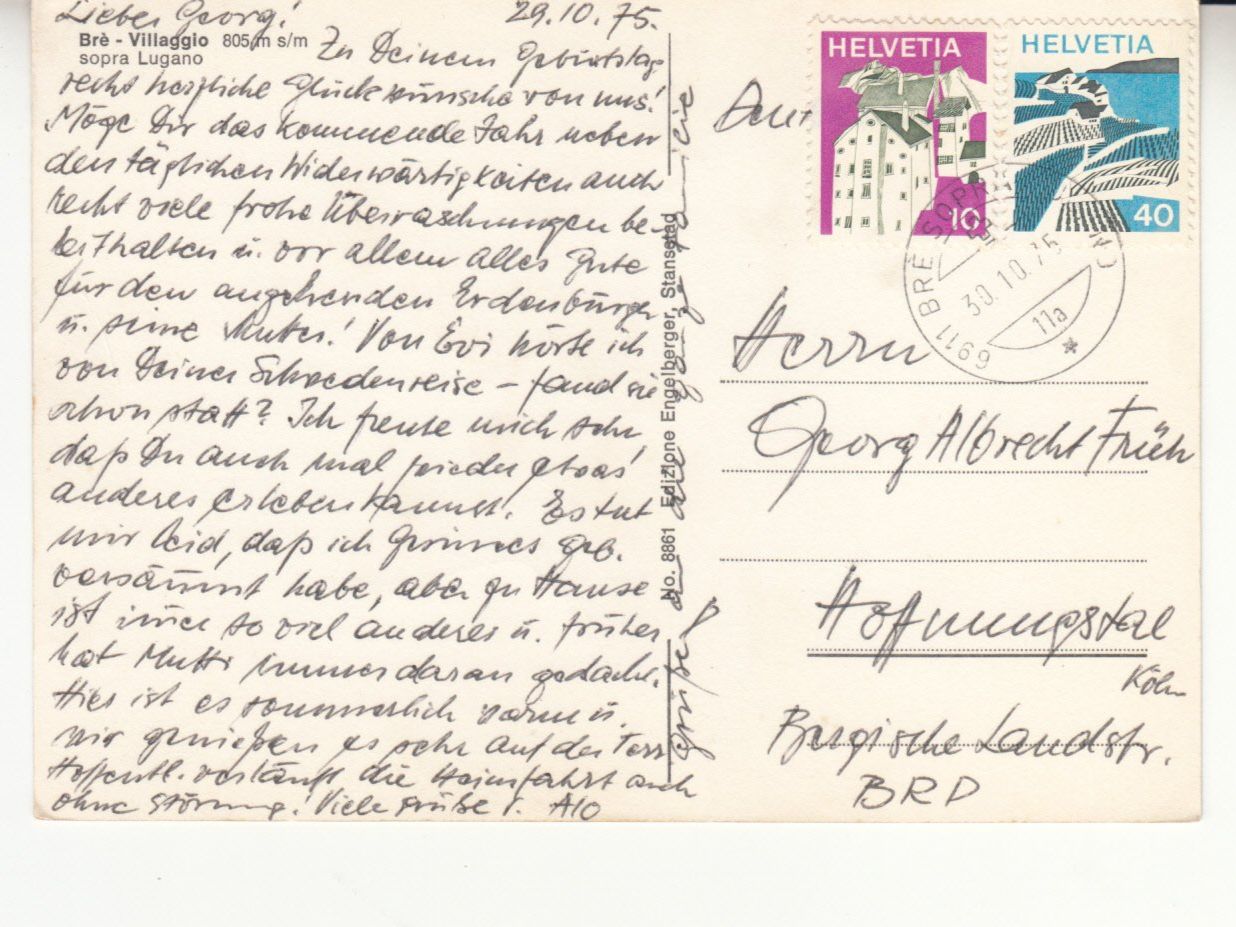 Lieber Georg! 29.10.75.
Brè - Villaggio 805 m s/m
sopra Lugano
Zu Deinem Geburtstag
recht herzliche Glückwünsche von uns!
Möge Dir das kommende Jahr neben
den täglichen Widerwärtigkeiten auch
recht viele frohe Überraschungen be-
reithalten u. vor allem alles Gute
für den angehenden Erdenbürger
u. seine Mutter! Von Evi hörte ich
von Deiner Schwedenreise – fand sie
schon statt? Ich freute mich sehr,
daß Du auch mal wieder etwas
anderes erleben kannst. Es tut
mir leid, daß ich Geb.
versäumt habe, aber zu Hause
ist immer so viel anderes u. früher
hat Mutti immer daran gedacht.
Hier ist es sommerlich warm u.
wir genießen es sehr auf der Terr.
Hoffentl. verläuft die Heimfahrt auch
ohne Störung! Viele Grüße
Grüße an die ganze Familie
No. 8861 Edizione Engelberger, Stansstad
HELVETIA
10
HELVETIA
40
6911 BRÈ SOPRA
30.10.75
11a
Herrn
Georg Albrecht Früh
Hoffnungstal
Köln
Bergische Landstr.
BRD